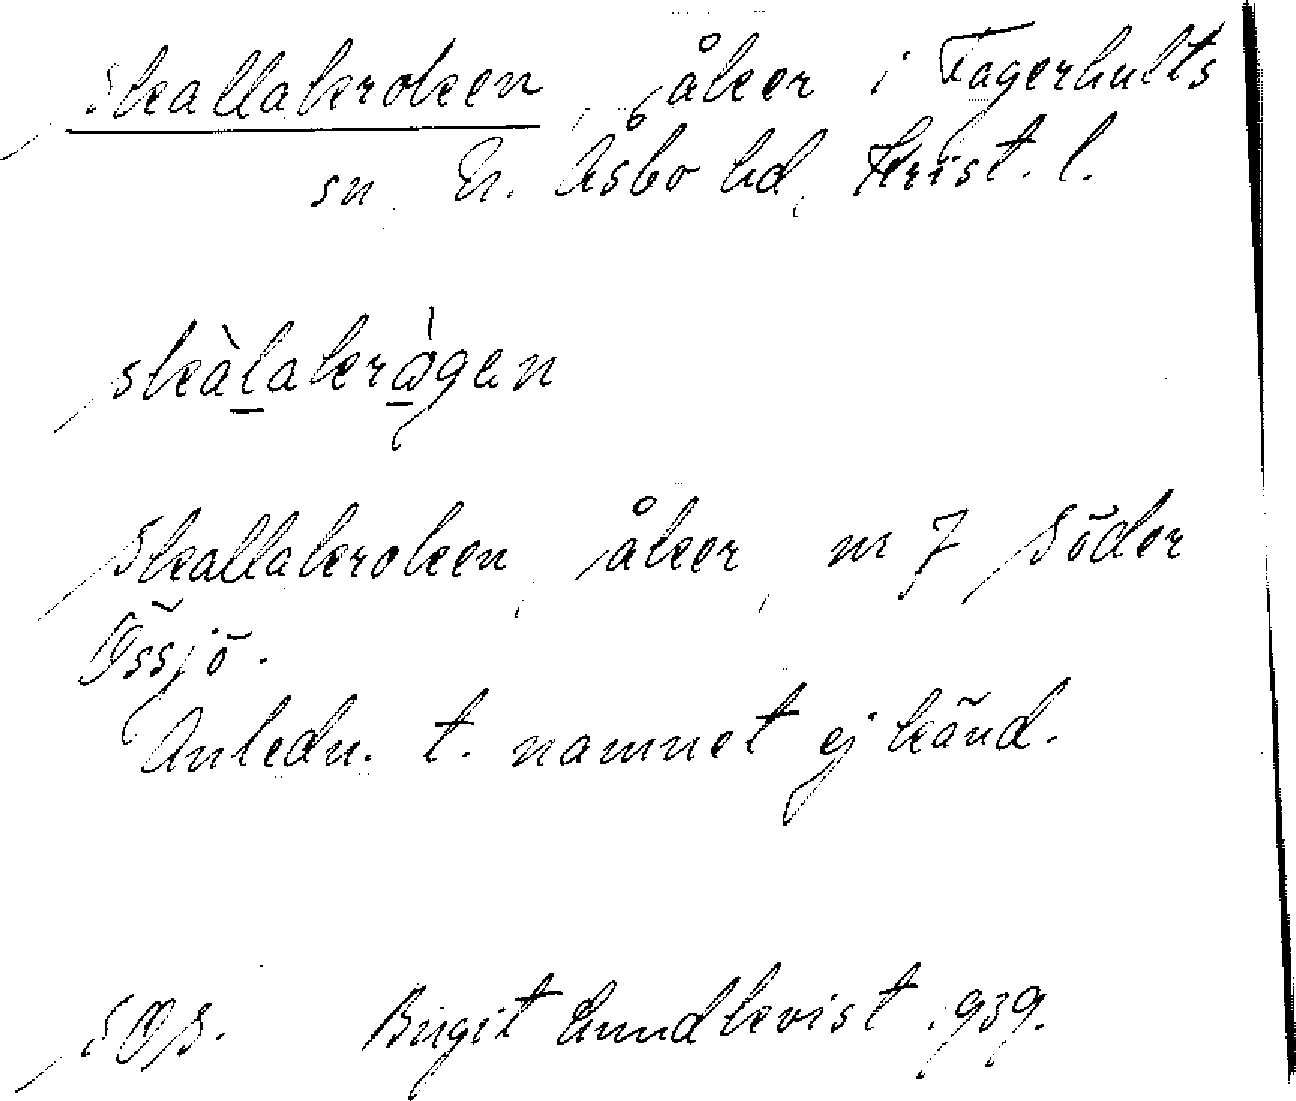 Skallakroken, åker i Fagerhults
sn, N. Åsbo hd, Krist. l.
skàlakrɑ̀gen
Skallakroken, åker, nr 7 Söder
Össjö.
Anledn. t. namnet ej känd.
SOS. Birgit Lundkvist 1939.